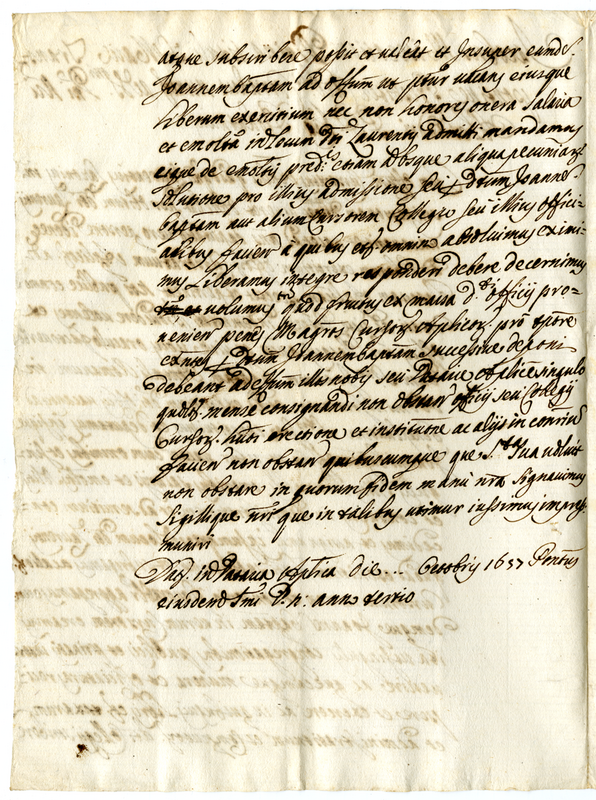 atque subscribere possit et valeat et Insuper eund. S.
Joannem baptam ad offium ut pfur vacans eiusque
liberum exercitium nec non honores onera Salaria
et emolta in locum dti Laurentij admitti mandamus
eique de emoltis pred.is etiam absque aliqua pecuniar.
Solutione pro illius admissione seu p dtum Joannem
baptam aut alium Cursorem Collegio seu illius offici-
alibus facien a quibus etc omnino absolvimus exími-
mus Liberamus integre responderi debere decernimus
et volumus tn quod fructus ex massa d.ti officij pro-
venien penes Magros Cursor. Aplicor. pro tpore
exnten p dtum Joannembaptam successive deponi
debeant ad effum illos nobis seu Datarie Aplice singulo
quolt. mense consignandi non obstan officij seu Collegij
Cursor. huti erectione et institutione ac alijs in contriu
facien non obstan quibuscumque que S.tas Sua voluit
non obstare in quorum fidem manu nra signavimus
Sigillique nri que in talibus utimur iussimus impres.
muniri
Dat. in Dataria Aplica die ... Octobris 1657 Pontus
eiusdem Smi D. n. anno tertio